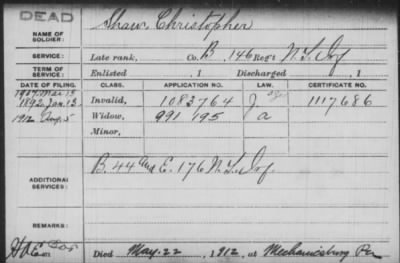 DEAD
NAME OF SOLDIER: Shaw Christopher
SERVICE: Late rank, Co. B, 146 Reg't N.Y. Inf
TERM OF SERVICE: Enlisted , 1 Discharged , 1
DATE OF FILING. CLASS. APPLICATION NO. LAW. CERTIFICATE NO.
1907 Mar 15
1892 Jan. 13. Invalid, 1083764 J. 1117686
1912 Aug. 5 Widow, 991 195 a
Minor,
ADDITIONAL SERVICES: B. 44 and E. 176 N.Y. Inf.
REMARKS:
Died May. 22, 1912, at Mechanicsburg Pa